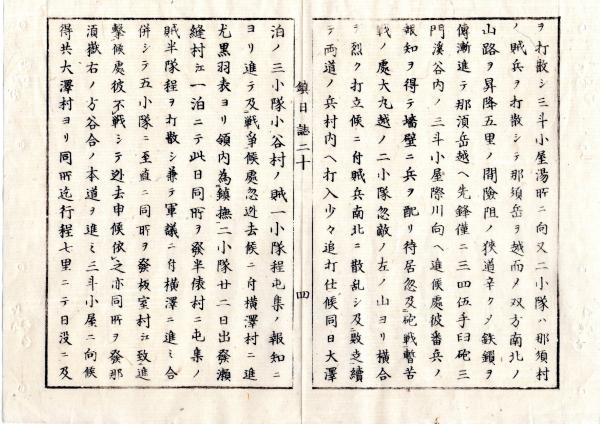 ヲ打散シ三斗小屋湯所ニ向又二小隊ハ那須村
ノ賊兵ヲ打散シテ那須岳ヲ越而メ双方南北ノ
山路ヲ昇降五里ノ間險阻ノ狹道辛クメ鉄鎻ヲ
傳漸進テ那須岳越ヘ先鋒僅ニ三四伍手臼砲三
門溪谷内ノ三斗小屋際川向ヘ進候處彼番兵ノ
報知ヲ得テ墻壁ニ兵ヲ配リ待居忽及砲戰暫苦
戰ノ處大九越ノ二小隊忽敵ノ左ノ山ヨリ横合
テ烈ク打立候ニ付賊兵南北ニ散乱シ及數支續
テ両道ノ兵村内ヘ打入少々追打仕候同日大澤
鎮日誌二十
四
泊ノ三小隊小谷村ノ賊一小隊程屯集ノ報知ニ
ヨリ進テ及戰爭候處忽迯去候ニ付横澤村ニ進
尤黒羽表ヨリ領内為鎮撫二小隊廿二日出發瀬
縫村江一泊ニテ此日同所ヲ發半俵村ニ屯集ノ
賊半隊程ヲ打散シ兼テ軍議ニ付横澤ニ進ミ合
併シテ五小隊ニ至直ニ同所ヲ發板室村江致進
撃候處彼不戰シテ迯去申候依之亦同所ヲ發那
須嶽右ノ方谷合ノ本道ヲ進ミ三斗小屋ニ向候
得共大澤村ヨリ同所迄行程七里ニテ日没ニ及